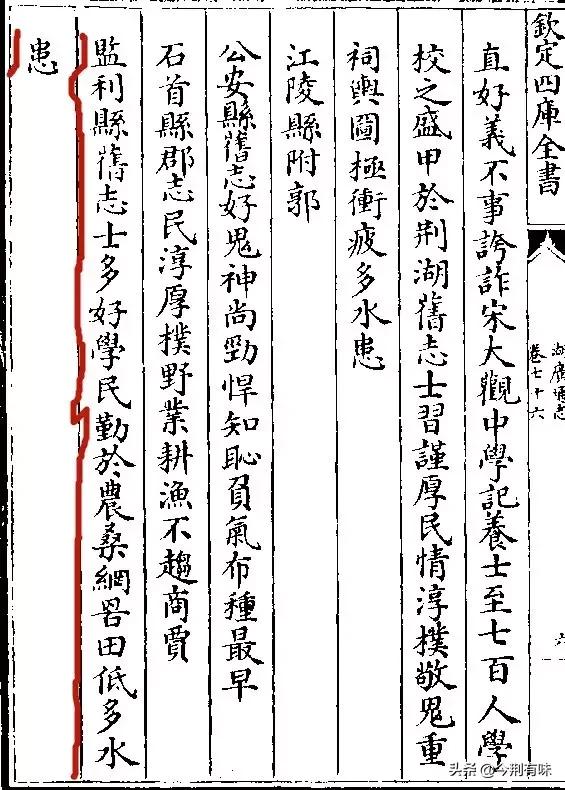 欽定四庫全書
湖廣通志
卷七十六
六
直好義不事誇詐宋大觀中學記養士至七百人學
校之盛甲於荆湖舊志士習謹厚民情淳樸敬鬼重
祠輿圖極衝疲多水患
江陵縣附郭
公安縣舊志好鬼神尚勁悍知恥負氣布種最早
石首縣郡志民淳厚樸野業耕漁不趨商賈
監利縣舊志士多好學民勤於農桑網罟田低多水
患
头条@今荆有味